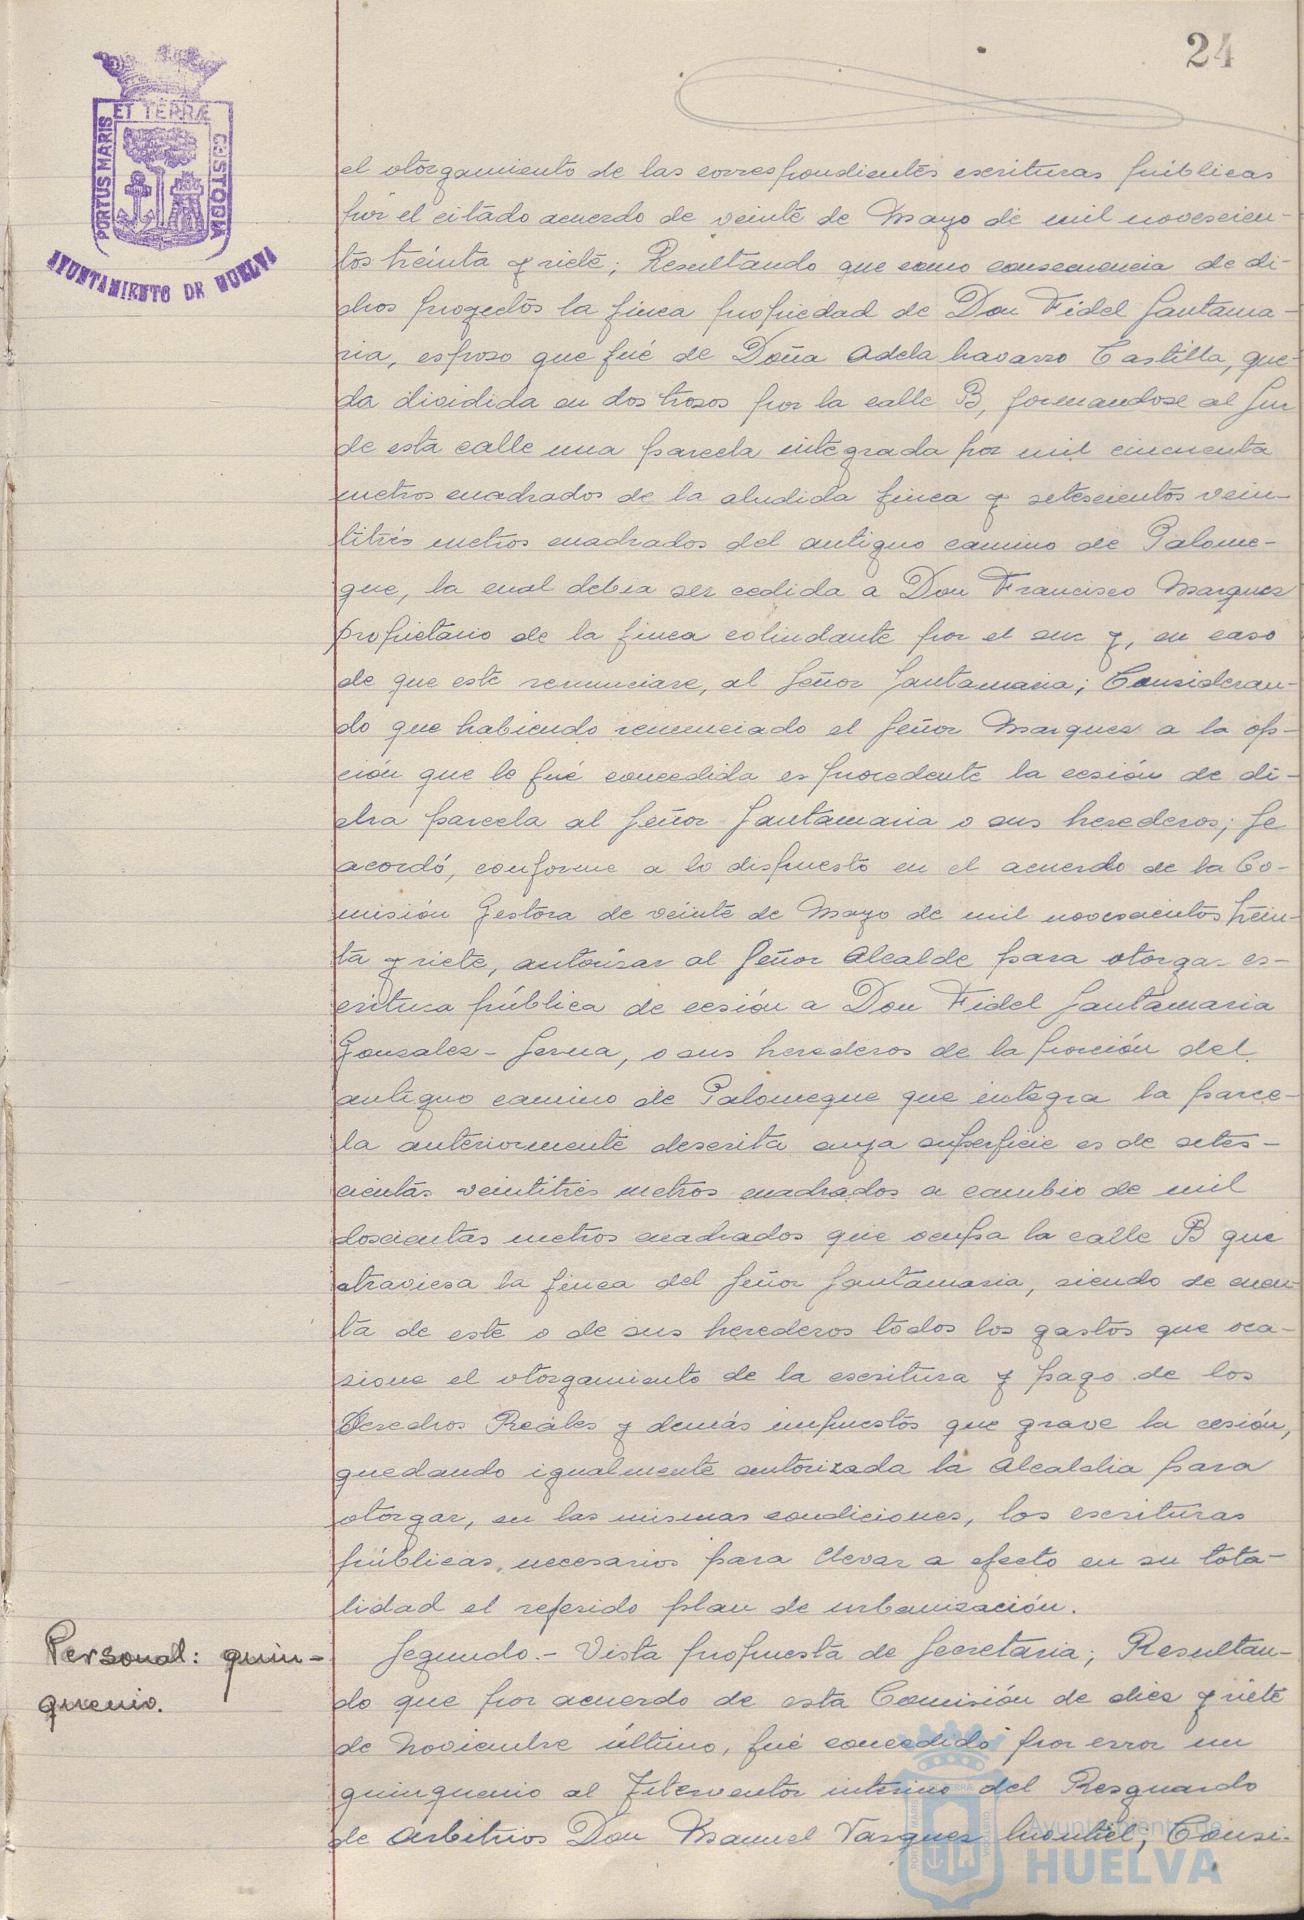 24
PORTUS MARIS ET TERRÆ CUSTODIA
AYUNTAMIENTO DE HUELVA
el otorgamiento de las correspondientes escrituras públicas
por el citado acuerdo de veinte de Mayo de mil novescien-
tos treinta y siete; Resultando que como consecuencia de di-
chos proyectos la finca propiedad de Don Fidel Santama-
ria, esposo que fué de Doña Adela Navarro Castilla, que-
da dividida en dos trosos por la calle B, formandose al Sur
de esta calle una parcela integrada por mil cincuenta
metros cuadrados de la aludida finca y setescientos vein-
titrés metros cuadrados del antiguo camino de Palome-
que, la cual debia ser cedida a Don Francisco Marquez
propietario de la finca colindante por el sur y, en caso
de que este renunciare, al Señor Santamaria; Consideran-
do que habiendo renunciado el Señor Marquez a la op-
ción que le fué concedida es procedente la cesión de di-
cha parcela al Señor Santamaria o sus herederos; Se
acordó, conforme a lo dispuesto en el acuerdo de la Co-
misión Gestora de veinte de Mayo de mil novescientos trein-
ta y siete, autorisar al Señor Alcalde para otorgar es-
critura pública de cesión a Don Fidel Santamaria
Gonsalez-Serna, o sus herederos de la porción del
antiguo camino de Palomeque que integra la parce-
la anteriormente descrita cuya superficie es de setes-
cientas veintitrés metros cuadrados a cambio de mil
doscientas metros cuadrados que ocupa la calle B que
atraviesa la finca del Señor Santamaria, siendo de cuen-
ta de este o de sus herederos todos los gastos que oca-
sione el otorgamiento de la escritura y pago de los
Derechos Reales y demás impuestos que grave la cesión,
quedando igualmente autorizada la Alcaldia para
otorgar, en las mismas condiciones, los escrituras
públicas, necesarios para llevar a efecto en su tota-
lidad el referido plan de urbanización.
Personal: quin-
quenio.
Segundo.- Vista propuesta de Secretaria; Resultan-
do que por acuerdo de esta Comisión de diez y siete
de Noviembre último, fué concedido por error un
quinquenio al Interventor interino del Resguardo
de Arbitrios Don Manuel Vasquez Montiel; Consi-
Ayuntamiento de
HUELVA